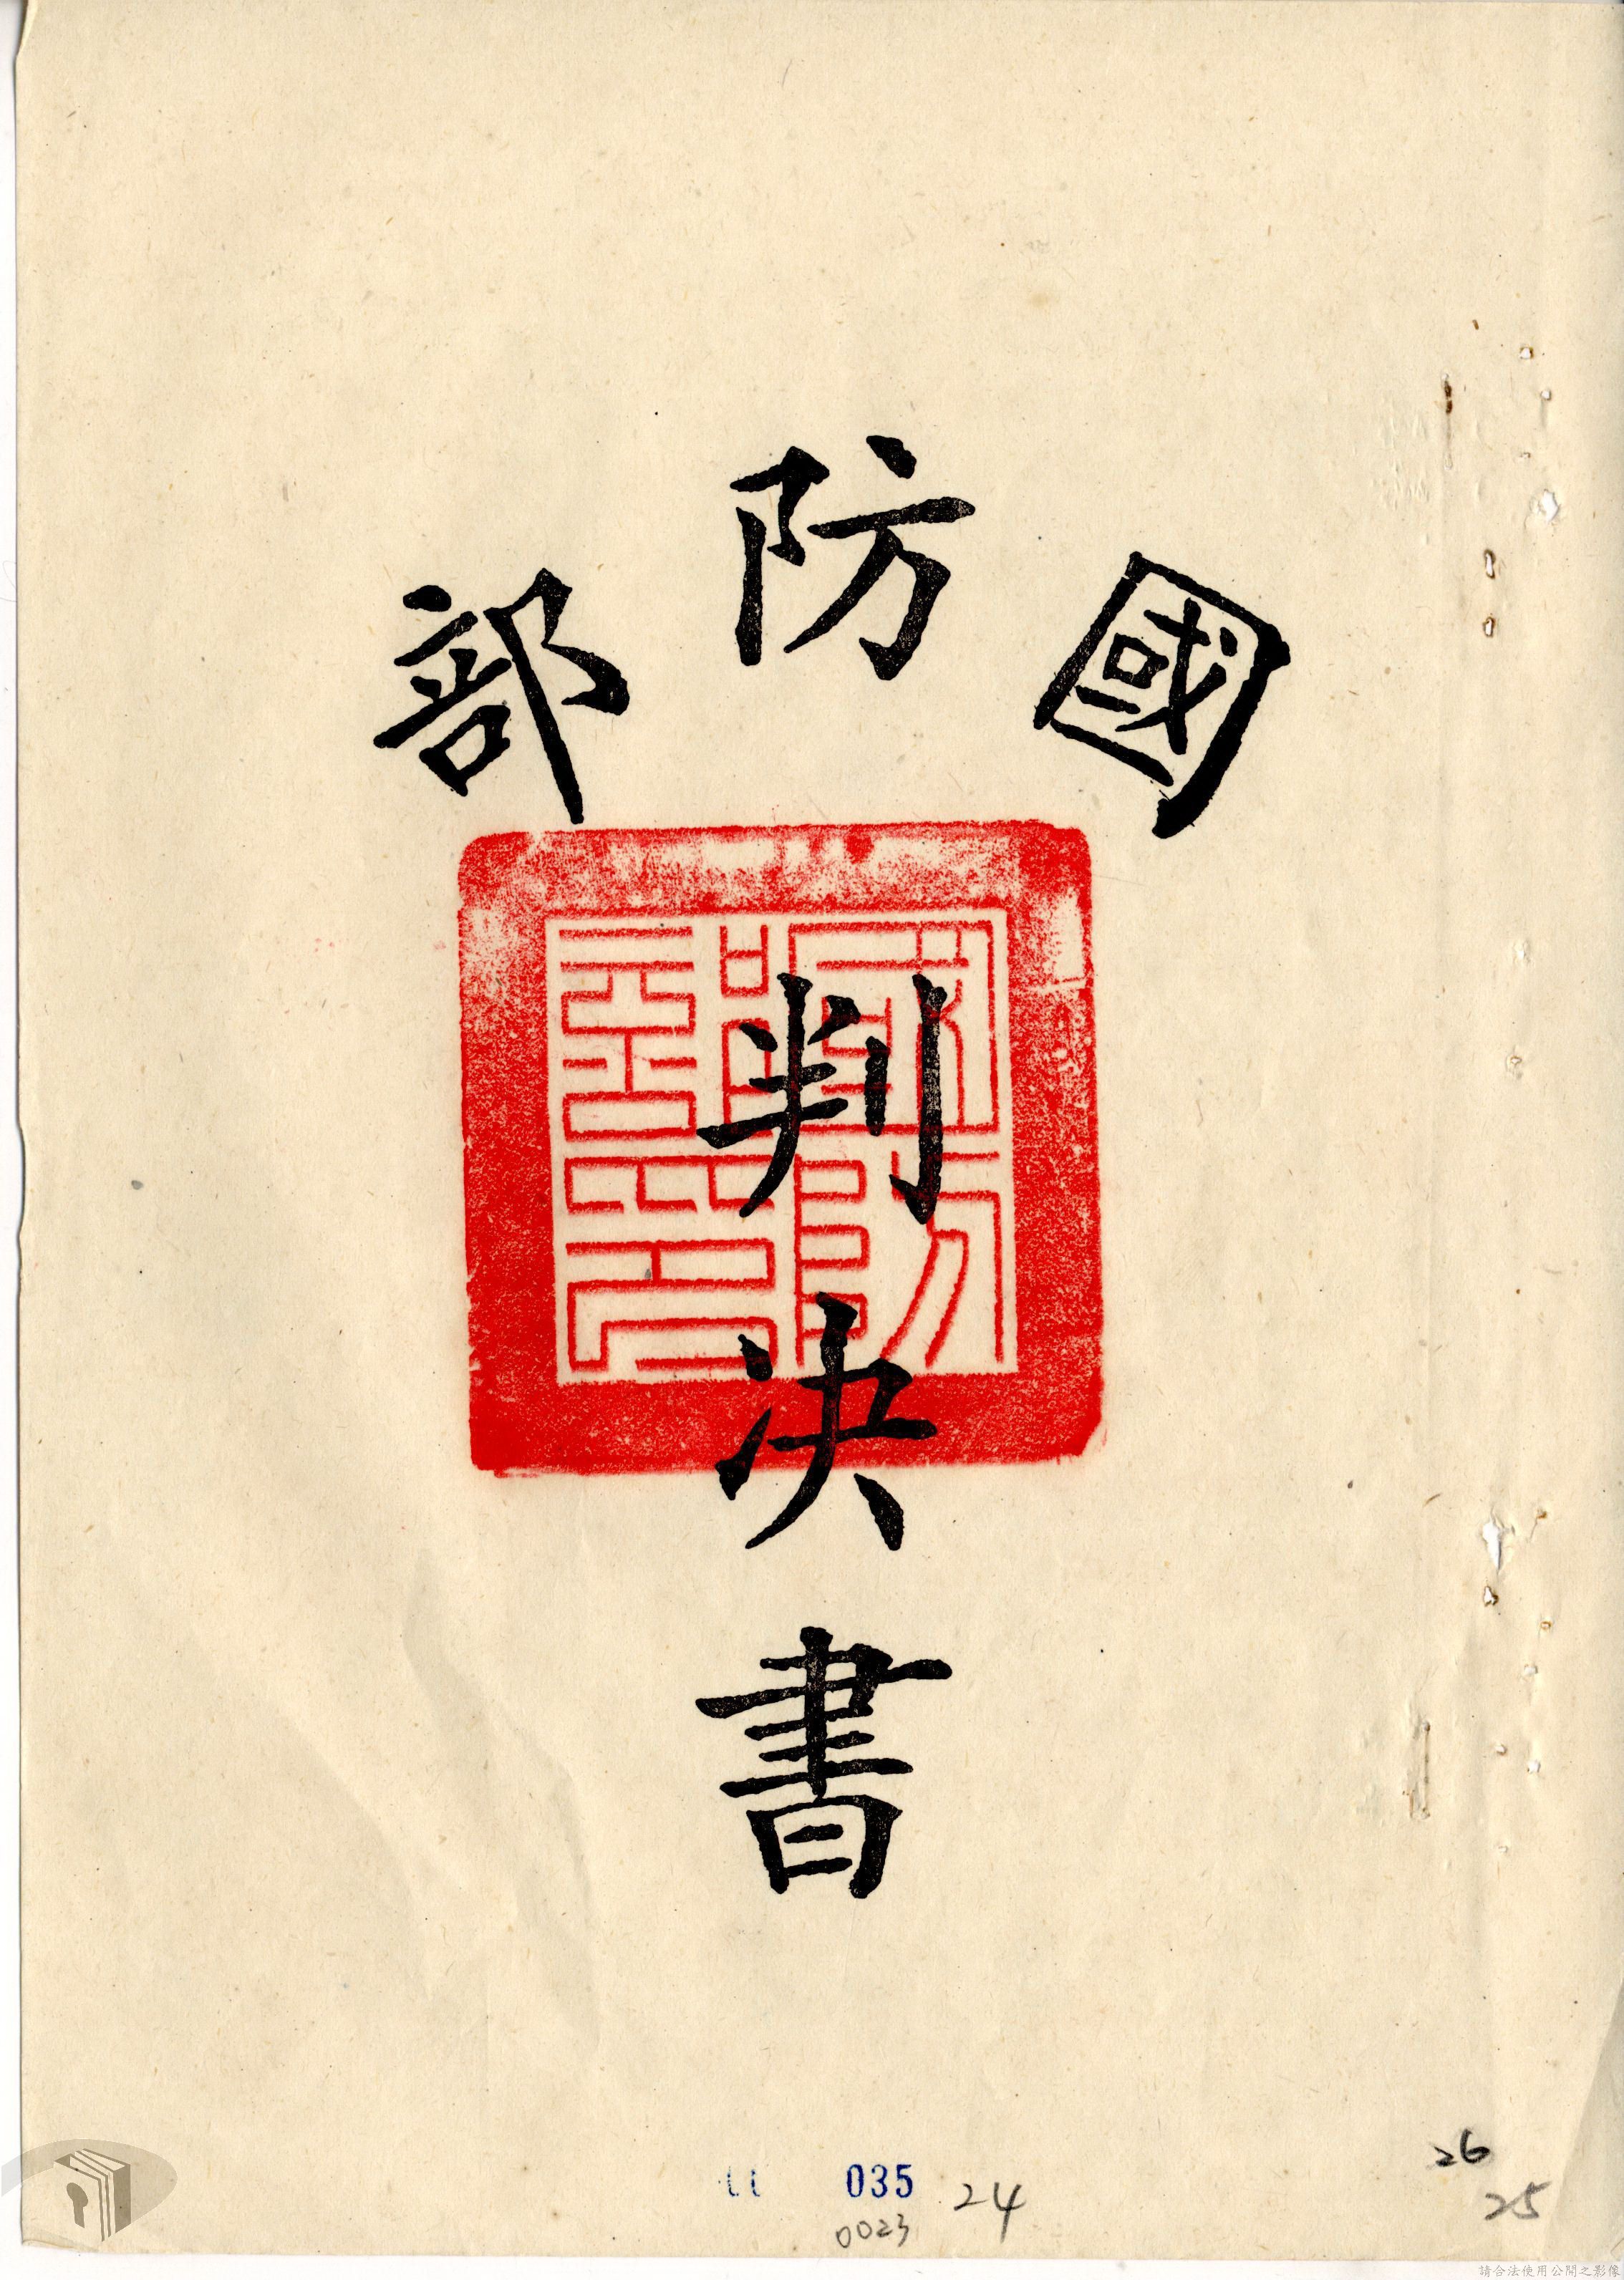 國防部
判決書
國防部印
035
24
0023
26
25
請合法使用公開之影像